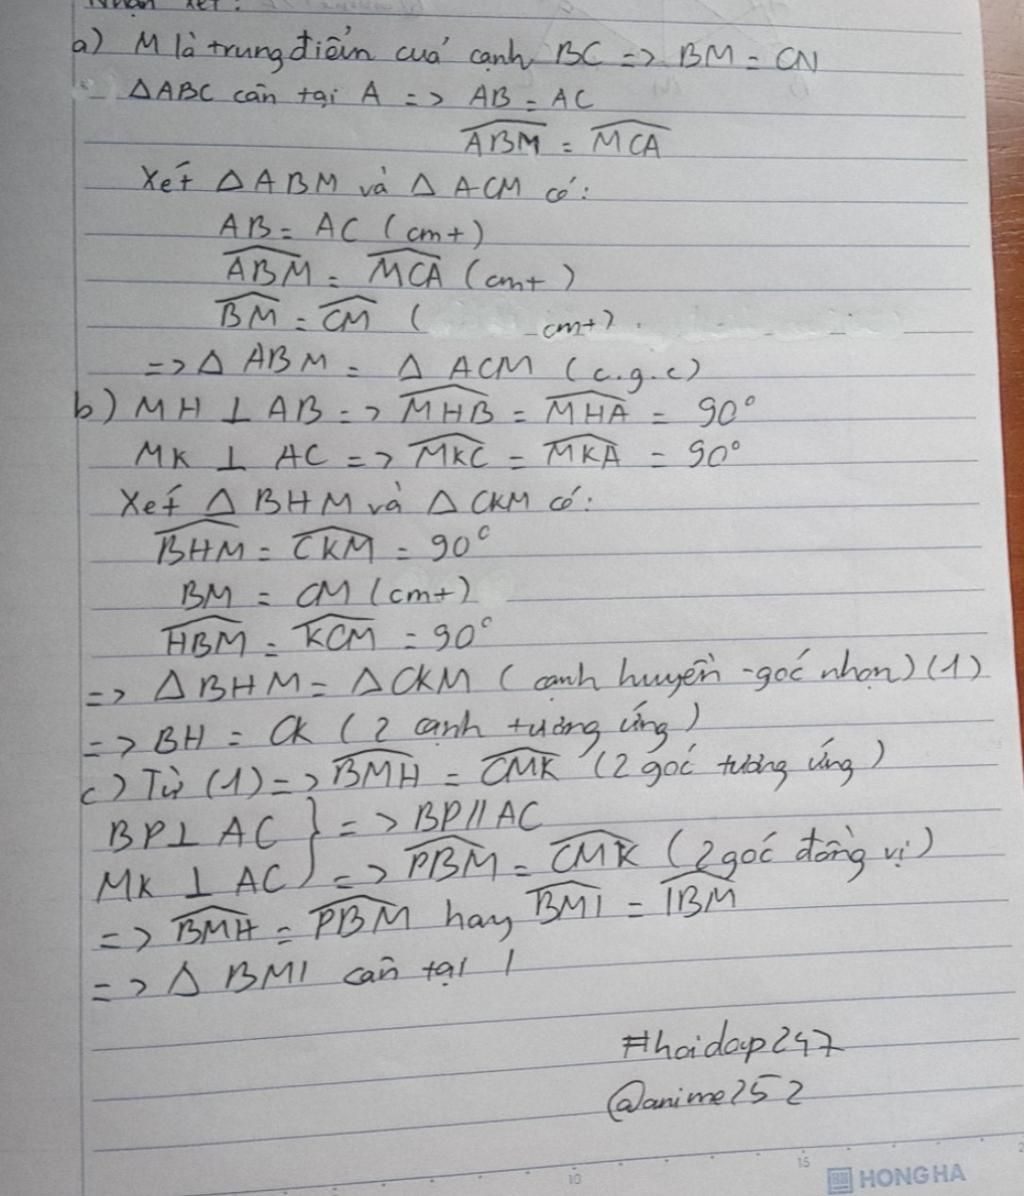 Nhận xét:
a) M là trung điểm cuả cạnh BC => BM = CN
ΔABC cân tại A => AB = AC
ABM = MCA
Xét Δ ABM và Δ ACM có:
AB = AC (cmt)
ABM = MCA (cmt)
BM = CM ( cmt).
=> Δ ABM = Δ ACM (c.g.c)
b) MH ⊥ AB => MHB = MHA = 90°
MK ⊥ AC => MKC = MKA = 90°
Xét Δ BHM và Δ CKM có:
BHM = CKM = 90°
BM = CM (cmt)
HBM = KCM = 90°
=> ΔBHM = ΔCKM (cạnh huyền - góc nhọn) (1)
=> BH = CK (2 cạnh tương ứng)
c) Từ (1) => BMH = CMK (2 góc tương ứng)
BP ⊥ AC } => BP // AC
MK ⊥ AC => PBM = CMK (2 góc đồng vị)
=> BMH = PBM hay BMI = IBM
=> Δ BMI cân tại I
#hoidap247
@anime252
10 15 2
HONG HA